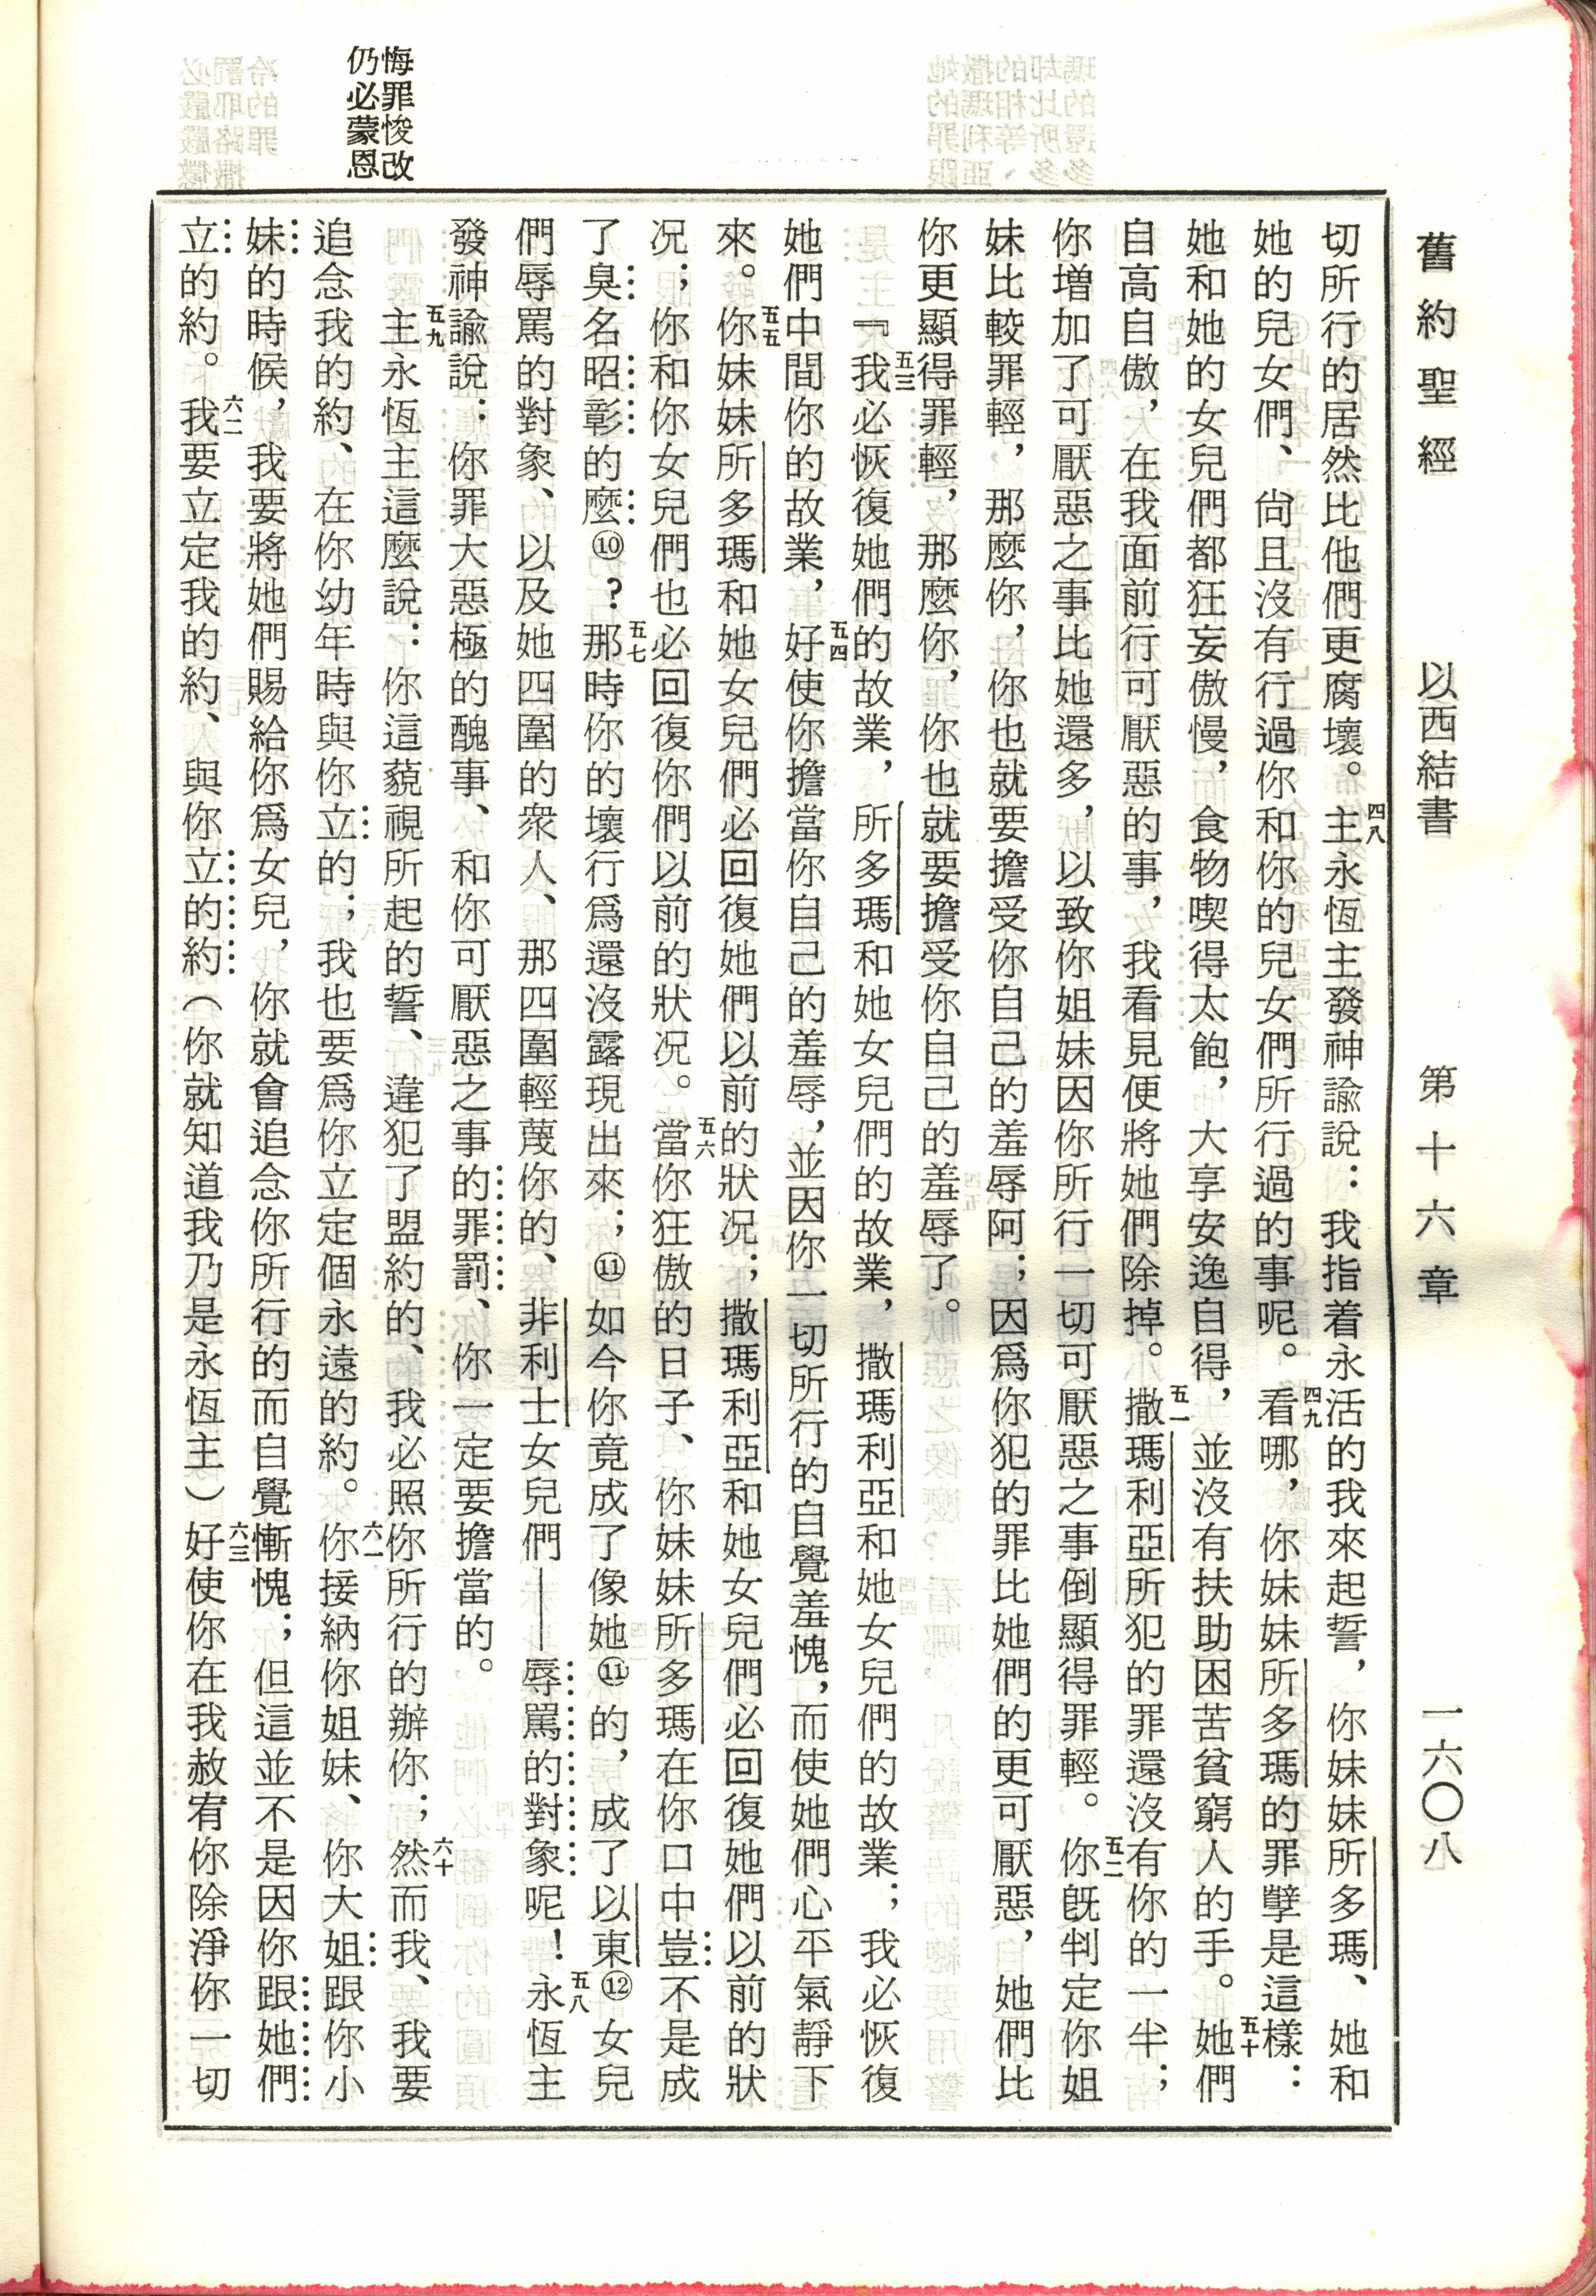 舊約聖經　以西結書　第十六章　一六〇八
悔罪悛改
仍必蒙恩
切所行的居然比他們更腐壞。四八主永恆主發神諭說：我指着永活的我來起誓，你妹妹所多瑪、她和
她的兒女們、尙且沒有行過你和你的兒女們所行過的事呢。四九看哪，你妹妹所多瑪的罪孽是這樣：
她和她的女兒們都狂妄傲慢，食物喫得太飽，大享安逸自得，並沒有扶助困苦貧窮人的手。五十她們
自高自傲，在我面前行可厭惡的事，我看見便將她們除掉。五一撒瑪利亞所犯的罪還沒有你的一半；
你增加了可厭惡之事比她還多，以致你姐妹因你所行一切可厭惡之事倒顯得罪輕。五二你旣判定你姐
妹比較罪輕，那麼你，你也就要擔受你自己的羞辱阿；因爲你犯的罪比她們的更可厭惡，她們比
你更顯得罪輕，那麼你，你也就要擔受你自己的羞辱了。
『五三我必恢復她們的故業，所多瑪和她女兒們的故業，撒瑪利亞和她女兒們的故業；我必恢復
她們中間你的故業，五四好使你擔當你自己的羞辱，並因你一切所行的自覺羞愧，而使她們心平氣靜下
來。五五你妹妹所多瑪和她女兒們必回復她們以前的狀况；撒瑪利亞和她女兒們必回復她們以前的狀
况；你和你女兒們也必回復你們以前的狀况。五六當你狂傲的日子、你妹妹所多瑪在你口中豈不是成
了臭名昭彰的麼⑩？五七那時你的壞行爲還沒露現出來；⑪如今你竟成了像她⑪的，成了以東⑫女兒
們辱罵的對象、以及她四圍的衆人、那四圍輕蔑你的、非利士女兒們——辱罵的對象呢！五八永恆主
發神諭說：你罪大惡極的醜事、和你可厭惡之事的罪罰、你一定要擔當的。
五九主永恆主這麼說：你這藐視所起的誓、違犯了盟約的、我必照你所行的辦你；六十然而我、我要
追念我的約、在你幼年時與你立的；我也要爲你立定個永遠的約。六一你接納你姐妹、你大姐跟你小
妹的時候，我要將她們賜給你爲女兒，你就會追念你所行的而自覺慚愧；但這並不是因你跟她們
立的約。六二我要立定我的約、與你立的約（你就知道我乃是永恆主）六三好使你在我赦宥你除淨你一切